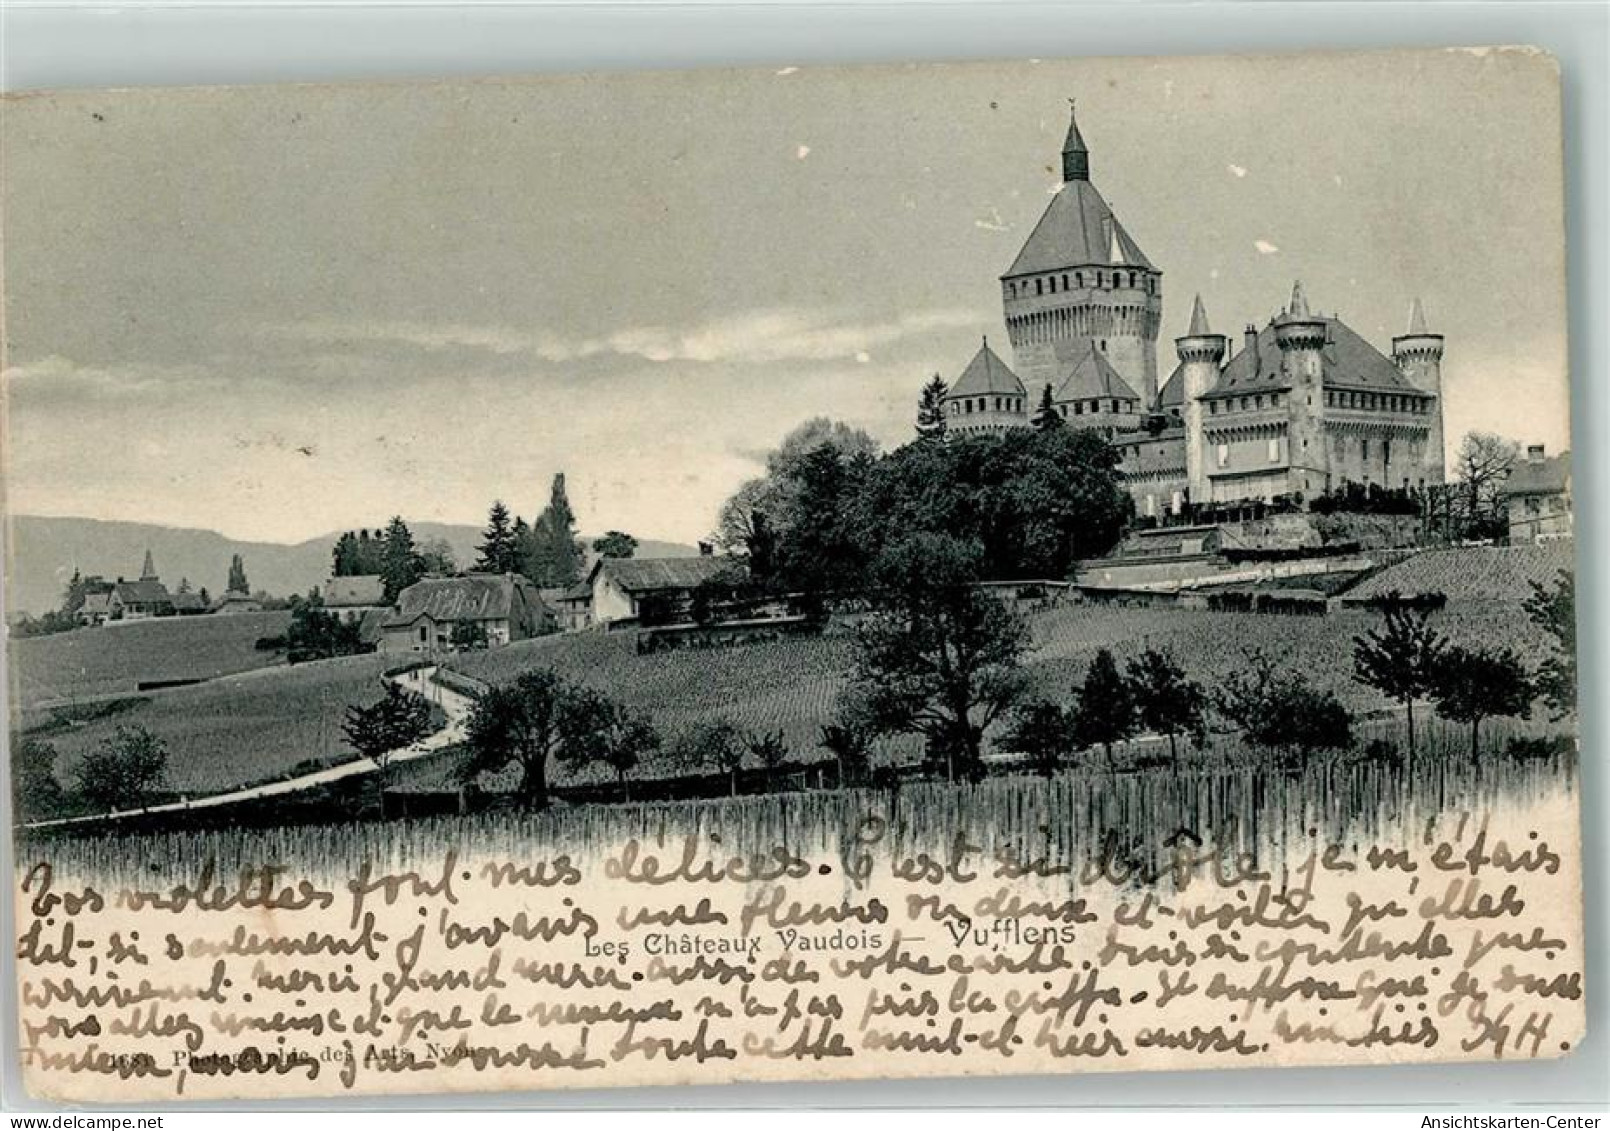 Vos violettes font mes délices. C'est si drôle je m'étais
dit, si seulement j'avais une fleur ou deux et voilà qu'elles
Les Châteaux Vaudois — Vufflens
arrivent. Merci, grand merci aussi de votre carte. suis si contente que
vous allez mieux et que le neveux n'a pas pris la griffe. Je suppose que je suis
mieux, mais j'ai toussé toute cette nuit et hier aussi.
Photographie des Arts, Nyon
Ansichtskarten-Center